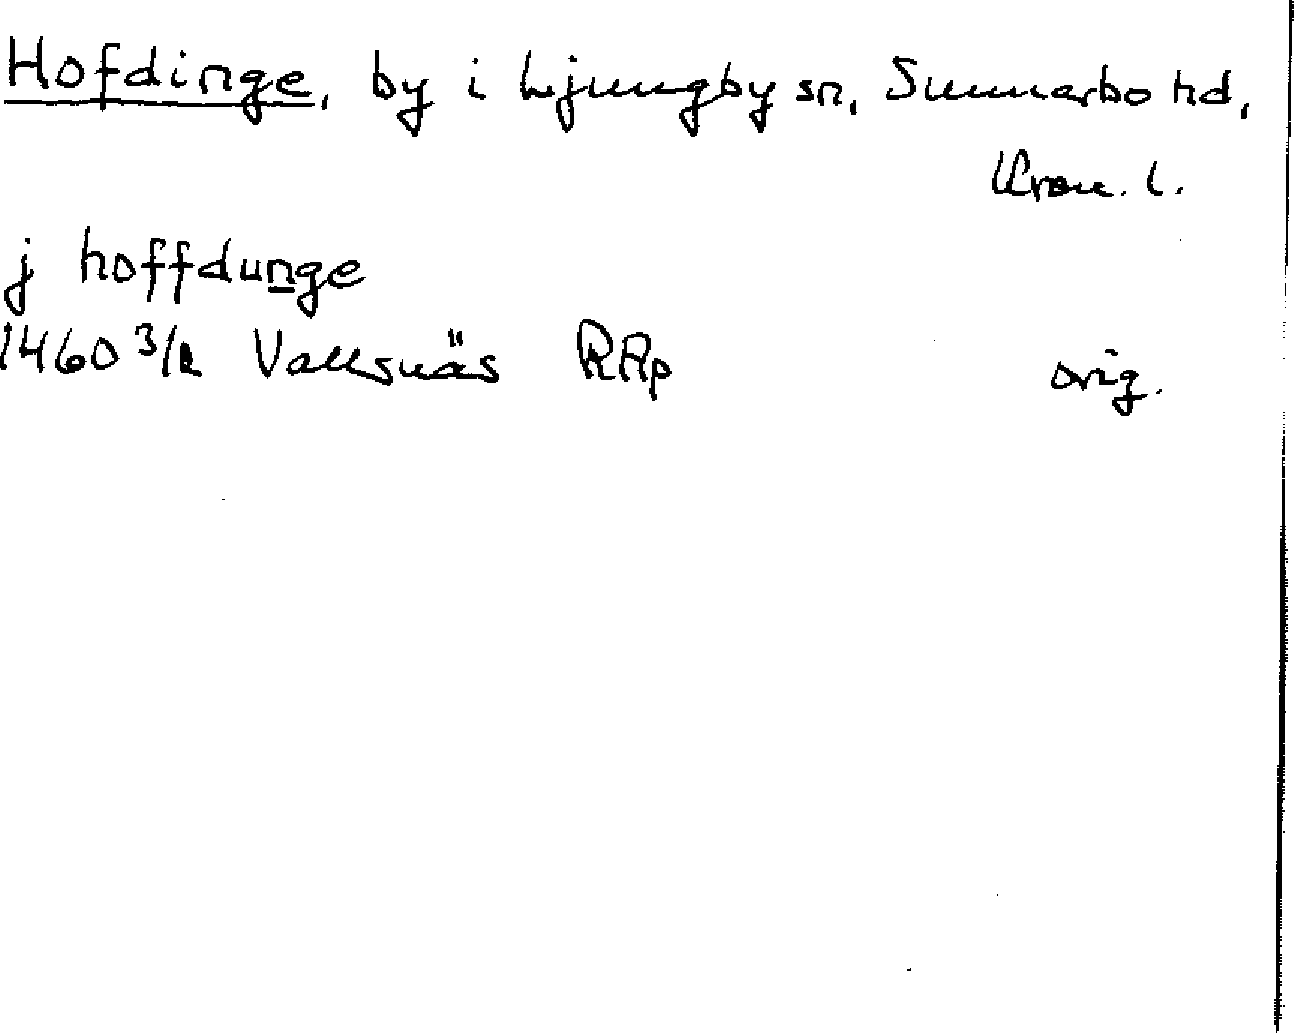 Hofdinge, by i Ljungby sn, Sunnerbo hd,
Kron. l.
j hoffdunge
1460 3/2 Vallsnäs RAp orig.